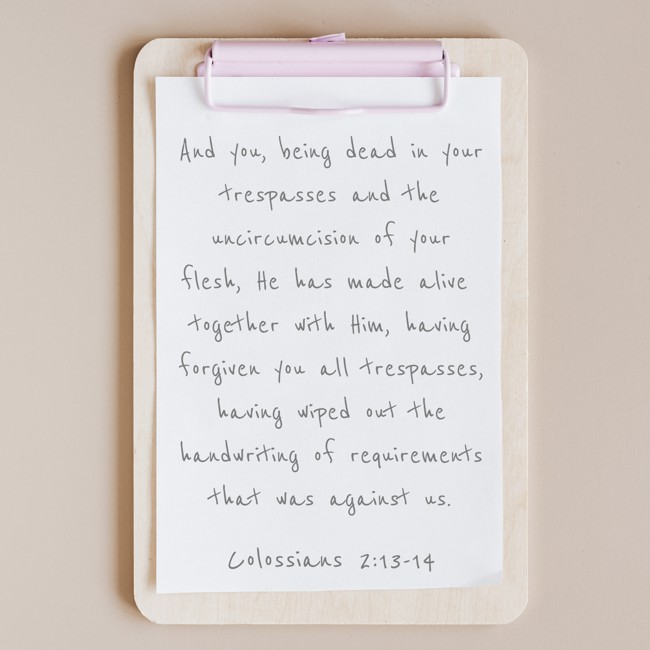 And you, being dead in your
trespasses and the
uncircumcision of your
flesh, He has made alive
together with Him, having
forgiven you all trespasses,
having wiped out the
handwriting of requirements
that was against us.
Colossians 2:13-14